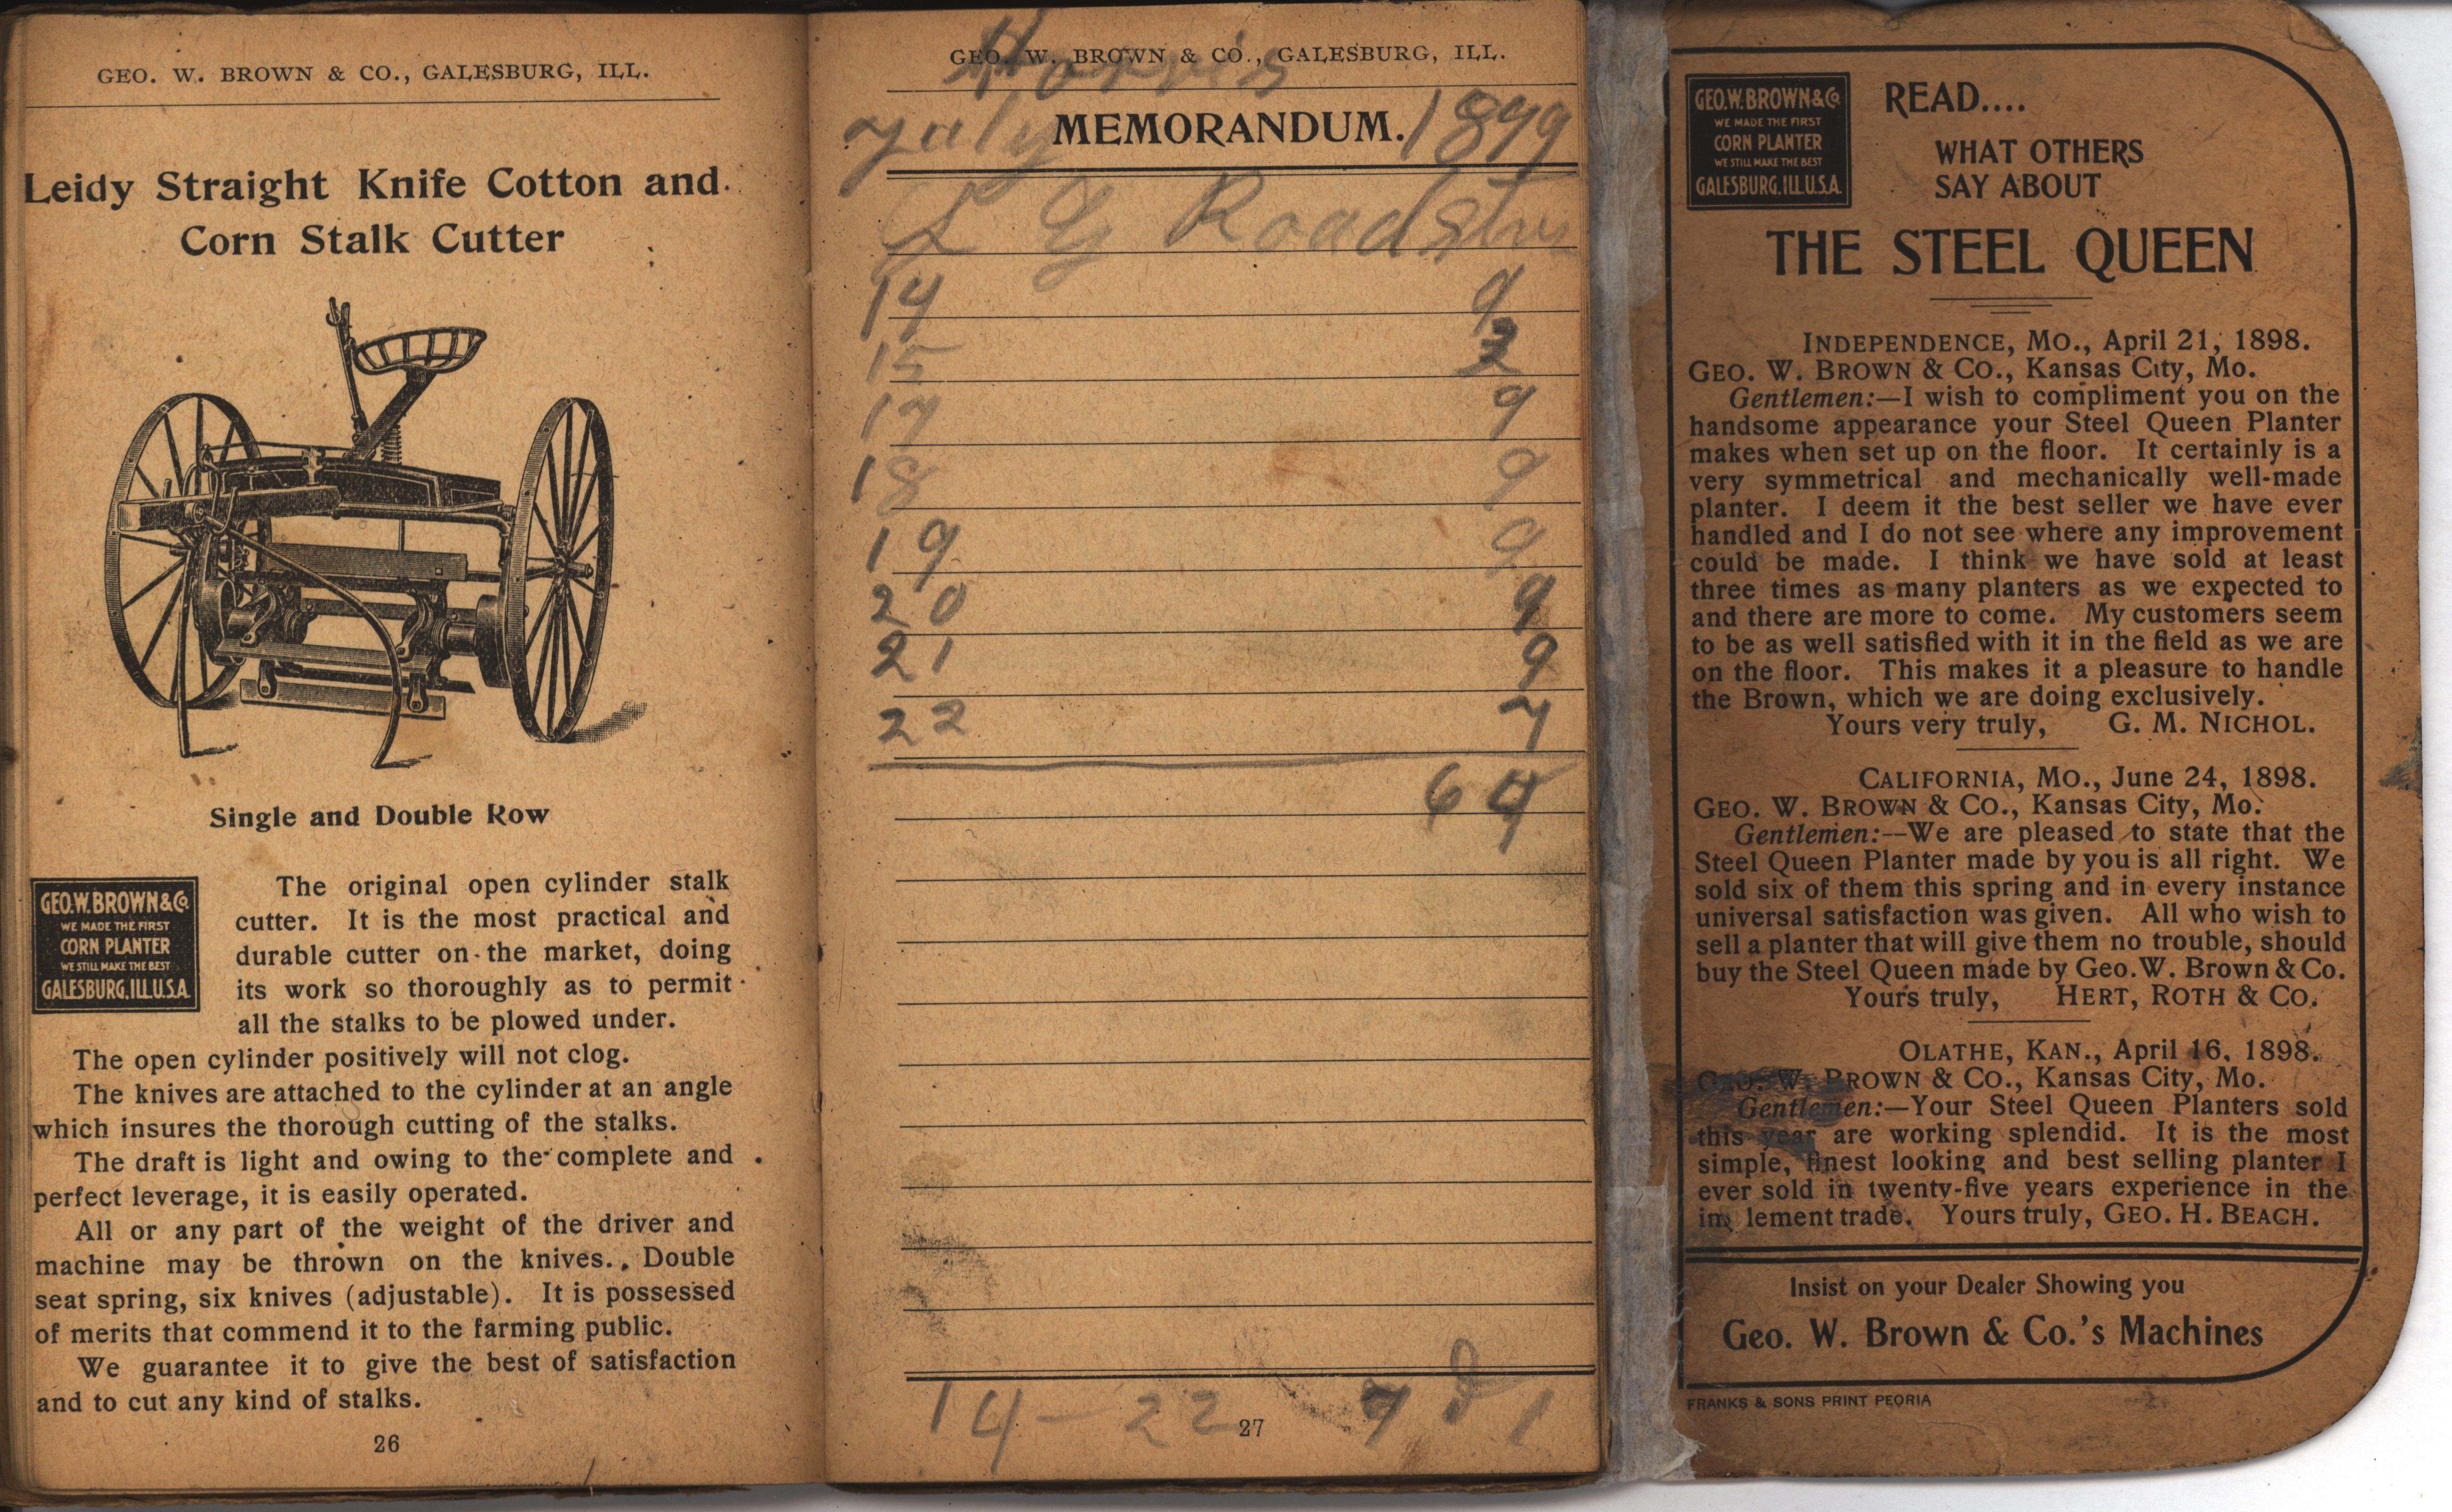 GEO. W. BROWN & CO., GALESBURG, ILL.
Leidy Straight Knife Cotton and
Corn Stalk Cutter
Single and Double Row
GEO.W.BROWN & Co
WE MADE THE FIRST
CORN PLANTER
WE STILL MAKE THE BEST
GALESBURG, ILL U.S.A.
The original open cylinder stalk
cutter. It is the most practical and
durable cutter on the market, doing
its work so thoroughly as to permit
all the stalks to be plowed under.
The open cylinder positively will not clog.
The knives are attached to the cylinder at an angle
which insures the thorough cutting of the stalks.
The draft is light and owing to the complete and
perfect leverage, it is easily operated.
All or any part of the weight of the driver and
machine may be thrown on the knives. Double
seat spring, six knives (adjustable). It is possessed
of merits that commend it to the farming public.
We guarantee it to give the best of satisfaction
and to cut any kind of stalks.
26
GEO. W. BROWN & CO., GALESBURG, ILL.
Harris
July MEMORANDUM. 1899
L G Road
14 9
15 3
17 9
18 9
19 9
20 9
21 9
22 7
64
14 - 22
27
GEO.W.BROWN & Co
WE MADE THE FIRST
CORN PLANTER
WE STILL MAKE THE BEST
GALESBURG, ILL U.S.A.
READ....
WHAT OTHERS
SAY ABOUT
THE STEEL QUEEN
INDEPENDENCE, MO., April 21, 1898.
GEO. W. BROWN & CO., Kansas City, Mo.
Gentlemen:—I wish to compliment you on the
handsome appearance your Steel Queen Planter
makes when set up on the floor. It certainly is a
very symmetrical and mechanically well-made
planter. I deem it the best seller we have ever
handled and I do not see where any improvement
could be made. I think we have sold at least
three times as many planters as we expected to
and there are more to come. My customers seem
to be as well satisfied with it in the field as we are
on the floor. This makes it a pleasure to handle
the Brown, which we are doing exclusively.
Yours very truly, G. M. NICHOL.
CALIFORNIA, MO., June 24, 1898.
GEO. W. BROWN & CO., Kansas City, Mo.
Gentlemen:—We are pleased to state that the
Steel Queen Planter made by you is all right. We
sold six of them this spring and in every instance
universal satisfaction was given. All who wish to
sell a planter that will give them no trouble, should
buy the Steel Queen made by Geo. W. Brown & Co.
Yours truly, HERT, ROTH & CO.
OLATHE, KAN., April 16, 1898.
GEO. W. BROWN & CO., Kansas City, Mo.
Gentlemen:—Your Steel Queen Planters sold
this year are working splendid. It is the most
simple, finest looking and best selling planter I
ever sold in twenty-five years experience in the
implement trade. Yours truly, GEO. H. BEACH.
Insist on your Dealer Showing you
Geo. W. Brown & Co.'s Machines
FRANKS & SONS PRINT PEORIA